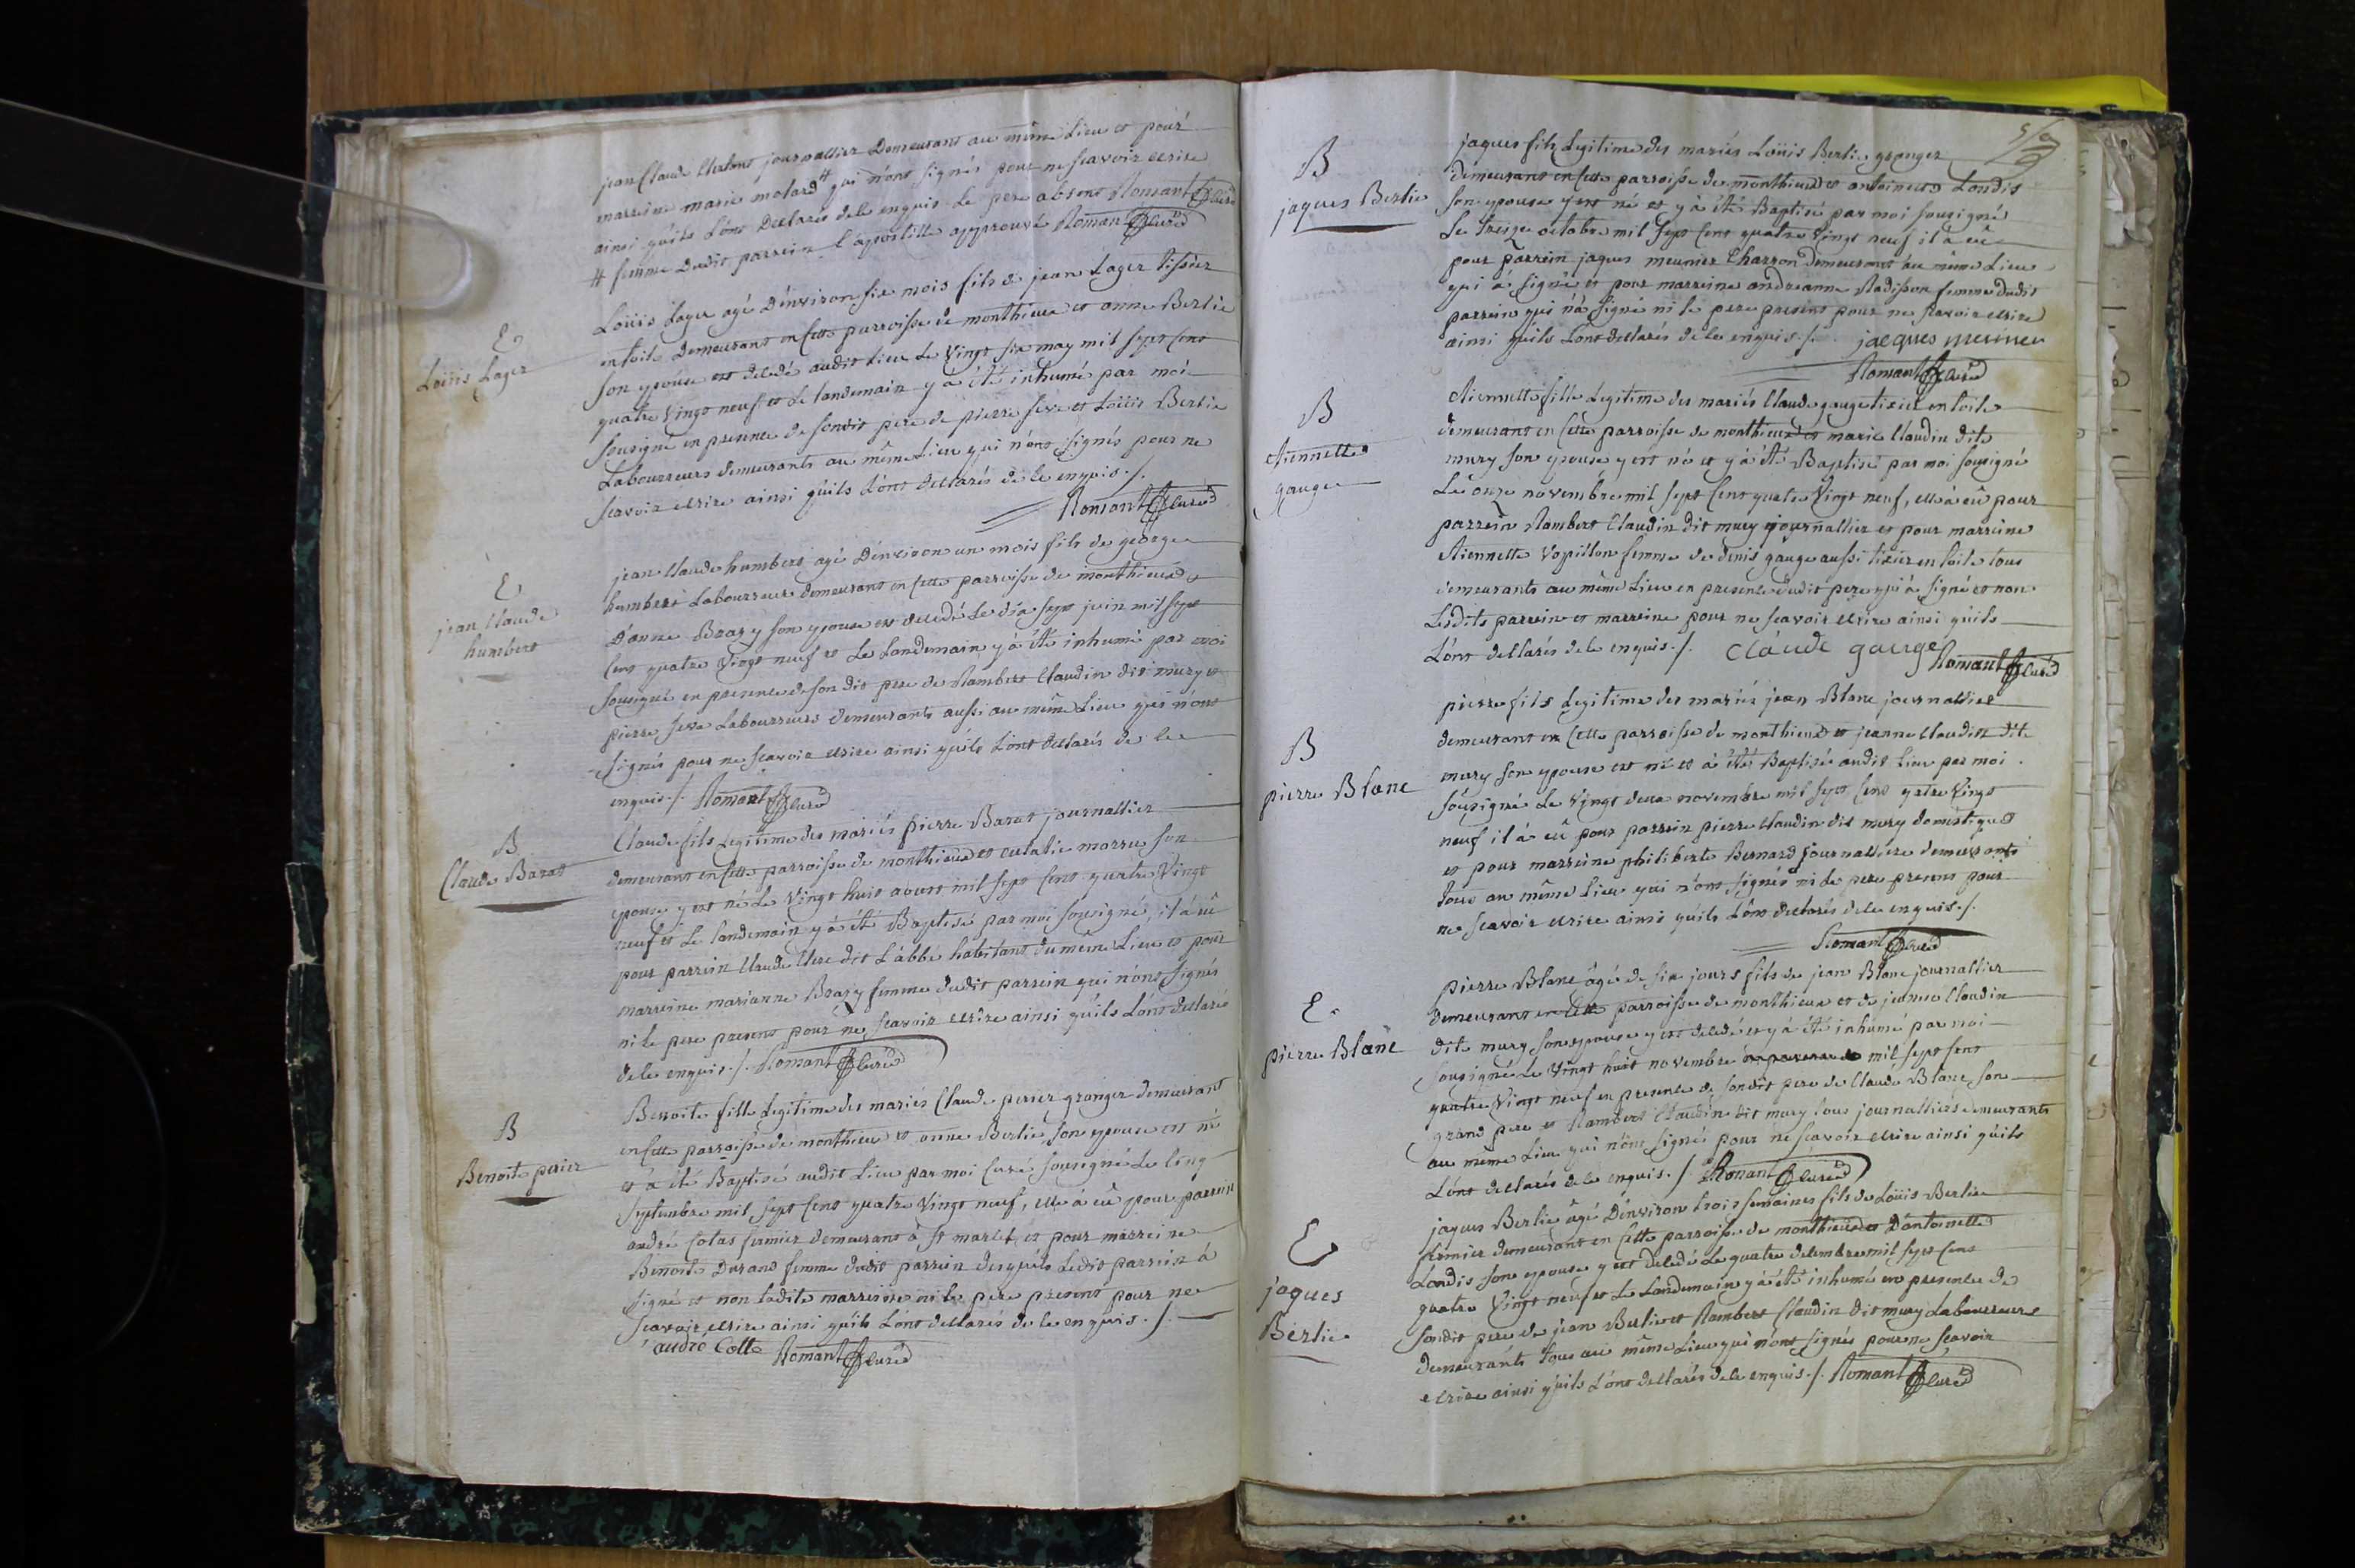 jean Claude journallier Demeurant au même Lieu et pour
marreine marie molard # qui n'ont signés pour ne scavoir ecrire
ainsi qu'ils L'ont Declarés de ce enquis Le pere absent Romant Curé
# femme Dudit parrein L'apostille approuvé Romant Curé
E
Loüis Lager
Loüis Lager agé D'environ six mois fils de jean Lager Tissier
en toile Demeurant en cette parroisse de monthieux et anne Berlie
son epouse est decedé audit Lieu Le Vingt six may mil sept cent
quatre Vingt neuf et Le landemain y à été inhumé par moi
sousigné en presence de sondit pere de pierre seve et Loüis Berlie
Laboureurs demeurants au même Lieu qui n'ont signés pour ne
scavoir ecrire ainsi qu'ils L'ont declarés de ce enquis ./.
Romant Curé
E
jean Claude
humbert
jean Claude humbert agé D'environ un mois fils de george
humbert Laboureur demeurant en cette parroisse de monthieux et
D'anne Brazy son epouse est decedé Le dix sept juin mil sept
cent quatre Vingt neuf et Le Landemain y à été inhumé par moi
sousigné en presence de son dit pere de Rambert Claudin dit mury et
pierre seve Laboureurs demeurants aussi au même Lieu qui n'ont
signés pour ne scavoir ecrire ainsi qu'ils L'ont declarés de ce
enquis ./. Romant Curé
B
Claude Barat
Claude fils Legitime des mariés pierre Barat journallier
demeurant en cette parroisse de monthieux et eulalie morru son
epouse y est né Le Vingt huit aoust mil sept cent quatre Vingt
neuf et Le landemain y à été Baptisé par moi sousigné, il à eû
pour parrein Claude dit L'abbé habitant du même Lieu et pour
marreine marianne Brazy femme dudit parrein qui n'ont signés
ni Le pere present pour ne scavoir ecrire ainsi qu'ils L'ont declaré
de ce enquis ./. Romant Curé
B
Benoite perier
Benoite fille Legitime des mariés Claude perier granger demeurant
en cette parroisse de monthieux et anne Berlie son epouse est né
et à été Baptisé audit Lieu par moi Curé sousigné Le cinq
septembre mil sept cent quatre Vingt neuf, elle à eû pour parrein
andré Cotas fermier demeurant à St marcel et pour marreine
Benoite Durand femme dudit parrein desquels Ledit parrein à
signé et non ladite marreine ni le pere present pour ne
scavoir ecrire ainsi qu'ils L'ont declarés de ce enquis ./.
andré Cotte Romant Curé
B
jaques Berlie
jaques fils Legitime des mariés Loüis Berlie granger
demeurant en cette parroisse de monthieux et antoinette Londis
son epouse y est né et y à été Baptisé par moi sousigné
Le treize octobre mil sept cent quatre Vingt neuf il à eû
pour parrein jaques meunier Charron demeurant au même Lieu
qui à signé et pour marreine andréanne Radisson femme dudit
parrein qui n'à signé ni le pere present pour ne scavoir ecrire
ainsi qu'ils L'ont declarés de ce enquis ./. jacques meunier
Romant Curé
B
etiennette
gauge
etiennette fille Legitime des mariés Claude gauge tixier en toile
demeurant en cette parroisse de monthieux et marie Claudin dite
mury son epouse y est né et y à été Baptisé par moi sousigné
Le onze novembre mil sept cent quatre Vingt neuf, elle à eû pour
parrein Rambert Claudin dit mury journallier et pour marreine
etiennette Vapillon femme de denis gauge aussi tixier en toile tous
demeurants au même Lieu en presence dudit pere qui à signé et non
Lesdits parrein et marreine pour ne scavoir ecrire ainsi qu'ils
L'ont declarés de ce enquis ./. claude gauge
Romant Curé
B
pierre Blanc
pierre fils Legitime des mariés jean Blanc journallier
demeurant en cette parroisse de monthieux et jeanne Claudin dite
mury son epouse est né et à été Baptisé audit Lieu par moi
sousigné Le Vingt deux novembre mil sept cent qatre Vingt
neuf il à eû pour parrein pierre Claudin dit mury domestique
et pour marreine philiberte Bernard journalliere demeurants
tous au même Lieu qui n'ont signés ni Le pere present pour
ne scavoir ecrire ainsi qu'ils L'ont declarés de ce enquis ./.
Romant Curé
E
pierre Blanc
pierre Blanc âgé de six jours fils de jean Blanc journallier
demeurant en cette parroisse de monthieux et de jeanne Claudin
dite mury son epouse y est decedé et y à été inhumé par moi
sousigné Le Vingt huit novembre mil sept cent
quatre Vingt neuf en presence de sondit pere de Claude Blanc son
grand pere et Rambert Claudin dit mury tous journalliers demeurants
au même Lieu qui n'ont signés pour ne scavoir ecrire ainsi qu'ils
L'ont declarés de ce enquis ./. Romant Curé
E
jaques
Berlie
jaques Berlie âgé D'environ trois semaines fils de Loüis Berlie
fermier demeurant en cette parroisse de monthieux et D'antoinette
Londis son epouse y est decedé Le quatre decembre mil sept cent
quatre Vingt neuf et Le Landemain y à été inhumé en presence de
sondit pere de jean Berlie et Rambert Claudin dit mury Laboureurs
demeurants tous au même Lieu qui n'ont signés pour ne scavoir
ecrire ainsi qu'ils L'ont declarés de ce enquis ./. Romant Curé